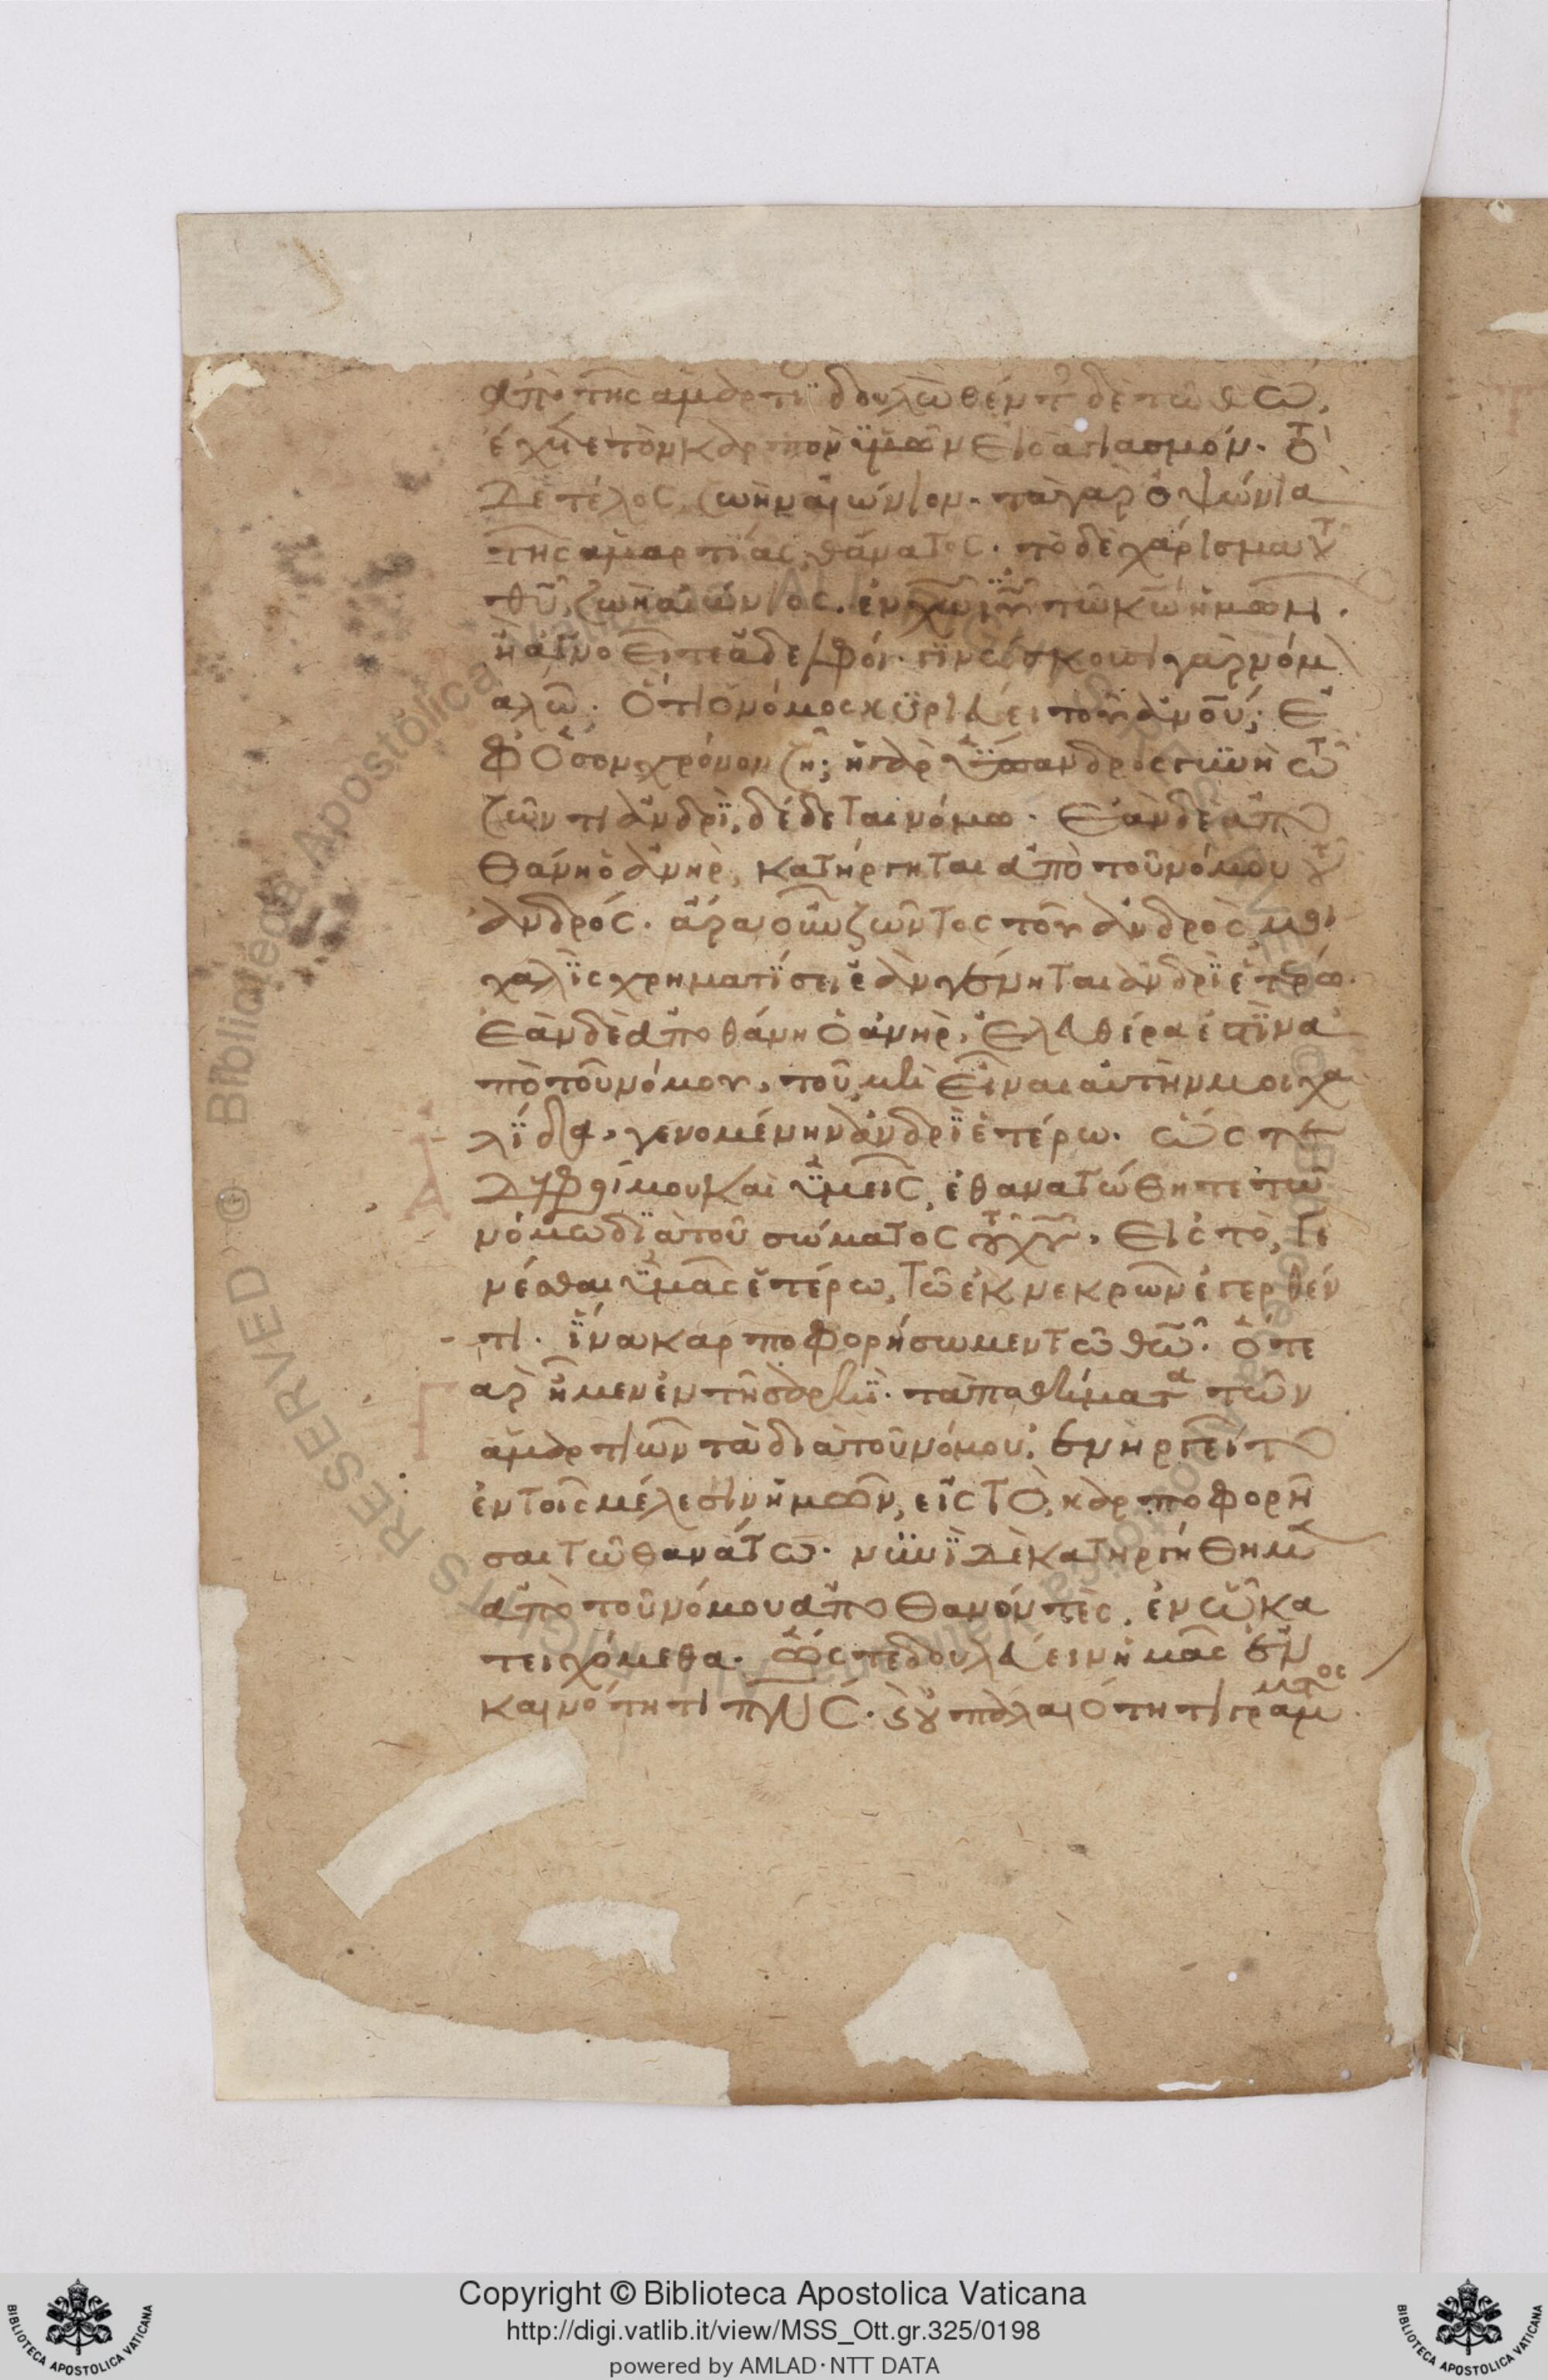 ἀπὸ τῆς ἁμαρτι δουλωθέντ δὲ τῶ θῶ,
ἔχετε τὸν καρπὸν ὑμῶν εἰς ἁγιασμόν. τὸ
δὲ τέλος, ζωὴν αἰώνιον. τὰ γὰρ ὀψώνια
τῆς ἁμαρτίας, θάνατος. τὸ δὲ χάρισμα τοῦ
θῦ, ζωὴ αἰώνιος. ἐν χω ιυ τῶ κω ἡμῶν.
ἢ ἀγνοεῖτε ἀδελφοί. γινώσκουσι γὰρ νόμ
λαλῶ. ὅτι ὁ νόμος κυριεύει τοῦ ἀνου; ἐ
φ ὅσον χρόνον ζῆ; ἡ γὰρ ὕπανδρος γυνὴ τῶ
ζῶντι ἀνδρὶ, δέδεται νόμω. ἐὰν δὲ ἀπο
θάνη ὁ ἀνὴρ, κατήργηται ἀπὸ τοῦ νόμου τοῦ
ἀνδρός. ἄρα οὖν ζῶντος τοῦ ἀνδρὸς μοι
χαλὶς χρηματίσει ἐὰν γένηται ἀνδρὶ ἑτέρω.
ἐὰν δὲ ἀποθάνη ὁ ἀνὴρ, ἐλευθέρα ἐστὶν ἀ
πὸ τοῦ νόμου, τοῦ μὴ εἶναι αὐτὴν μοιχα
λίδα, γενομένην ἀνδρὶ ἑτέρω. ὥστε
ἀδελφοί μου καὶ ὑμεῖς, ἐθανατώθητε τῶ
νόμω διὰ τοῦ σώματος τοῦ χυ, εἰς τὸ, γε
νέσθαι ὑμᾶς ἑτέρω, τῶ ἐκ νεκρῶν ἐγερθέν
τι. ἵνα καρποφορήσωμεν τῶ θῶ. ὅτε
γὰρ ἦμεν ἐν τῆ σαρκὶ. τὰ παθήματα τῶν
ἁμαρτιῶν τὰ διὰ τοῦ νόμου, ἐνηργεῖτο
ἐν τοῖς μέλεσιν ἡμῶν, εἰς τὸ, καρποφορῆ
σαι τῶ θανάτω. νυνὶ δὲ κατηργήθημεν
ἀπὸ τοῦ νόμου ἀποθανόντες, ἐν ὧ κα
τειχόμεθα. ὥστε δουλεύειν ἡμᾶς ἐν
καινότητι πνς. καὶ οὐ παλαιότητι γράμματος.
Copyright © Biblioteca Apostolica Vaticana
http://digi.vatlib.it/view/MSS_Ott.gr.325/0198
powered by AMLAD·NTT DATA